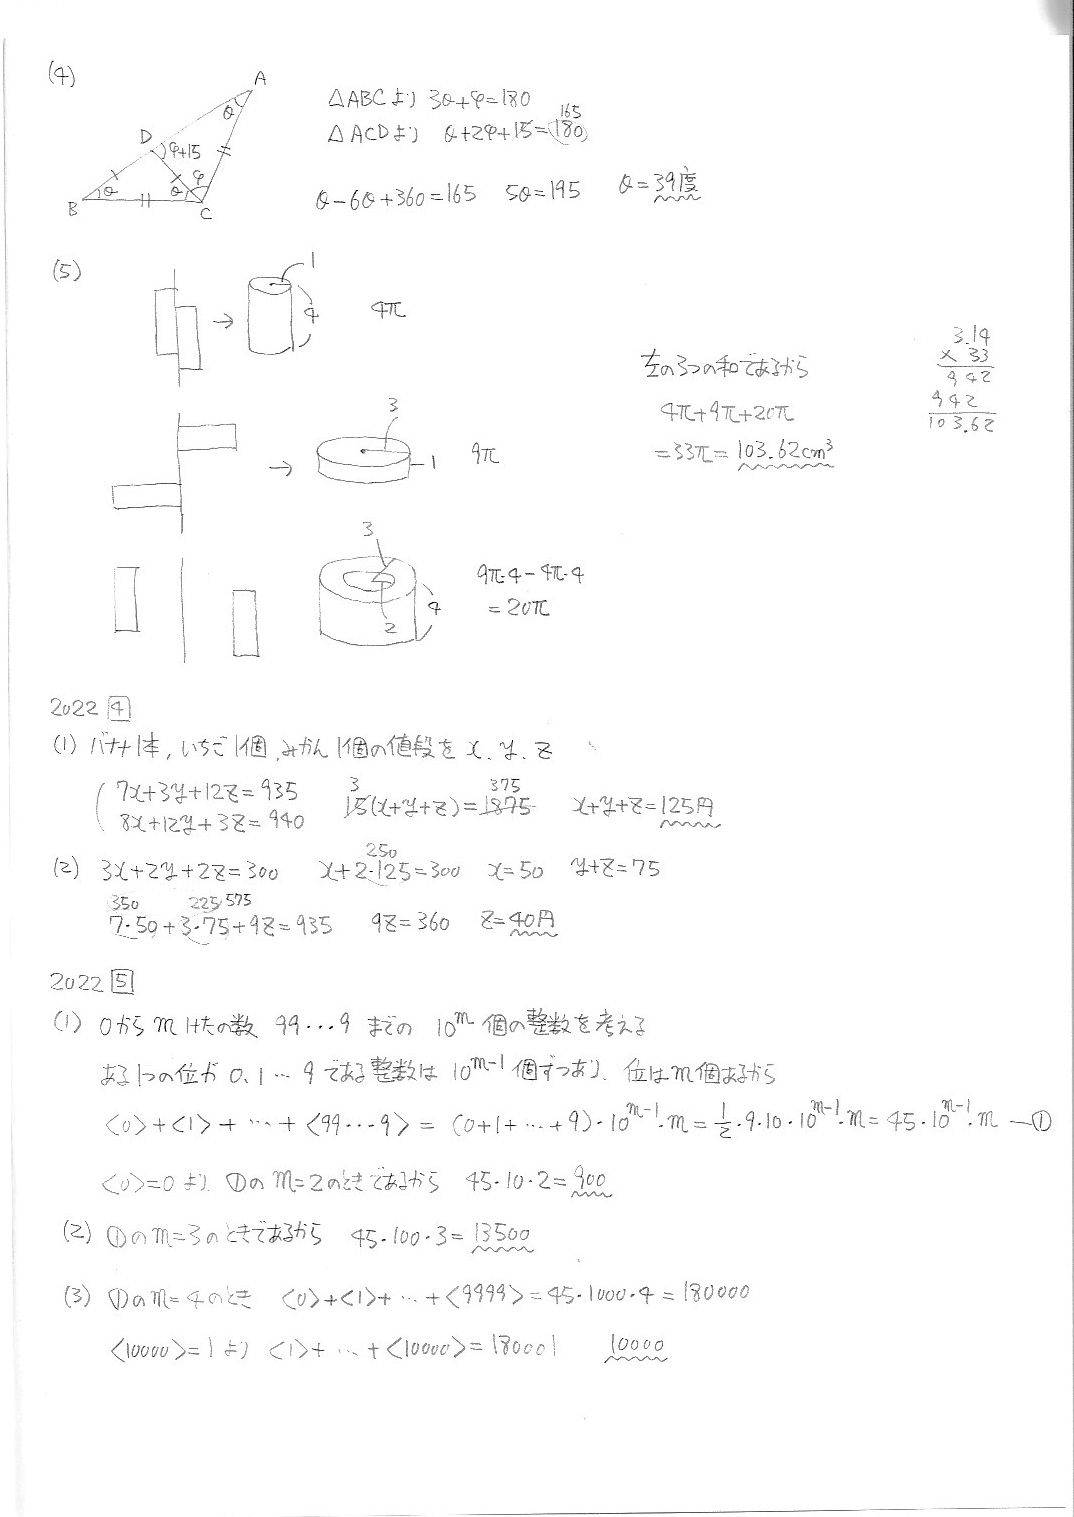 (4)
A
D
B
C
θ
φ+15
φ
θ
θ
△ABCより 3θ+φ=180
165
△ACDより θ+2φ+15=(180)
θ-6θ+360=165 5θ=195 θ=39度
(5)
1
4
4π
3
1
9π
3
2
4
9π・4-4π・4
=20π
左の3つの和であるから
4π+9π+20π
=33π=103.62cm³
3.14
× 33
942
942
103.62
2022 4
(1) バナナ1本,いちご1個,みかん1個の値段をx,y,z
7x+3y+12z=935
8x+12y+3z=940
3 375
15(x+y+z)=1875 x+y+z=125円
250
(2) 3x+2y+2z=300 x+2・125=300 x=50 y+z=75
350 225 575
7・50+3・75+9z=935 9z=360 z=40円
2022 5
(1) 0からmけたの数 99…9 までの 10^m 個の整数を考える
ある1つの位が0,1…9である整数は 10^{m-1} 個ずつあり、位はm個あるから
<0>+<1>+…+<99…9>=(0+1+…+9)・10^{m-1}・m=1/2・9・10・10^{m-1}・m=45・10^{m-1}・m ―①
<0>=0より ①のm=2のときであるから 45・10・2=900
(2) ①のm=3のときであるから 45・100・3=13500
(3) ①のm=4のとき <0>+<1>+…+<9999>=45・1000・4=180000
<10000>=1より <1>+…+<10000>=180001 10000